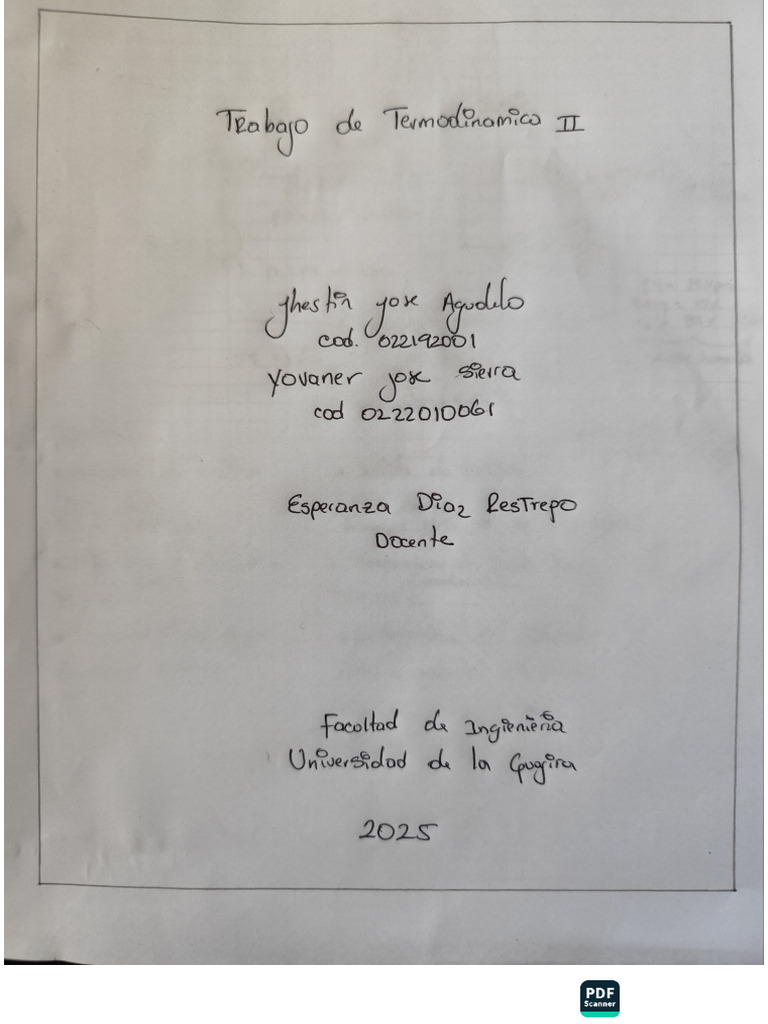 Trabajo de Termodinamica II
Jhestin Jose Agudelo
cod. 022192001
Yovaner Jose Sierra
cod 0222010061
Esperanza Diaz Restrepo
Docente
Facultad de Ingienieria
Universidad de la Gugira
2025
PDF
Scanner